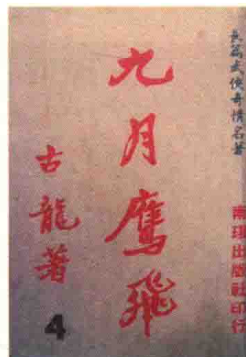 長篇武俠奇情名著
九月鷹飛
古龍著
4
南琪出版社印行